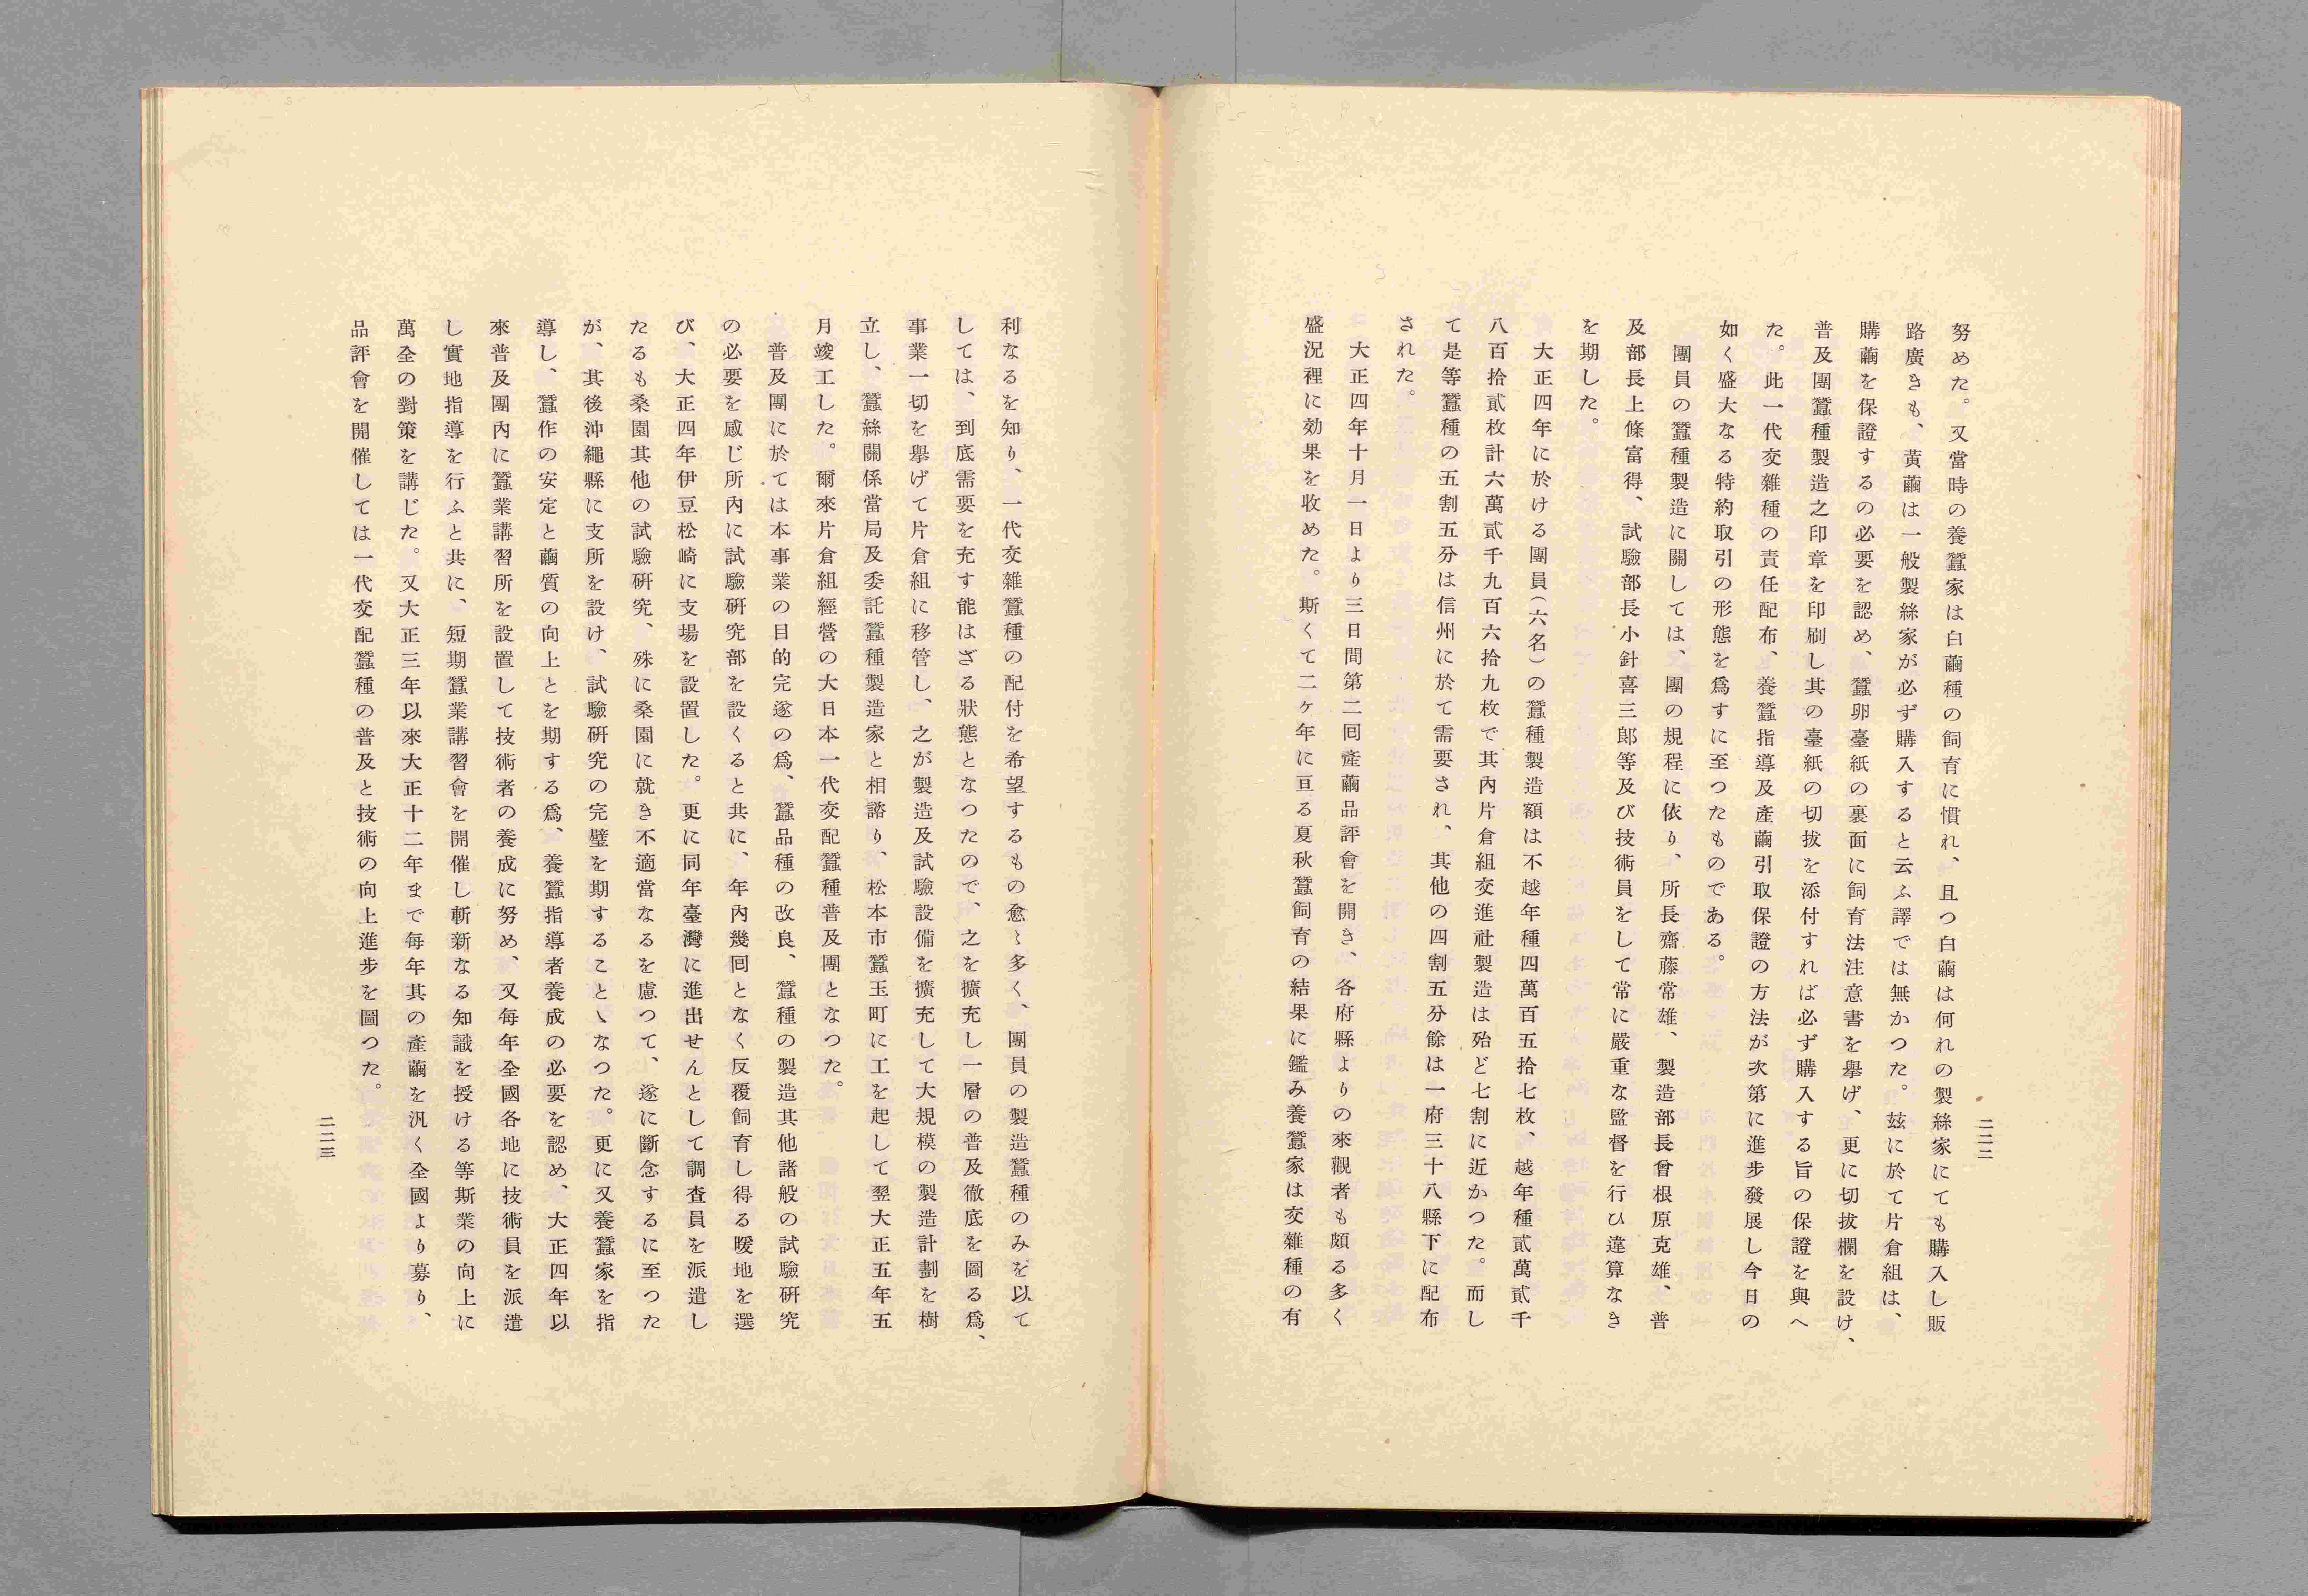 二二二
努めた。又當時の養蠶家は白繭種の飼育に慣れ、且つ白繭は何れの製絲家にても購入し販
路廣きも、黃繭は一般製絲家が必ず購入すると云ふ譯では無かつた。玆に於て片倉組は、
購繭を保證するの必要を認め、蠶卵臺紙の裏面に飼育法注意書を擧げ、更に切拔欄を設け、
普及團蠶種製造之印章を印刷し其の臺紙の切拔を添付すれば必ず購入する旨の保證を與へ
た。此一代交雜種の責任配布、養蠶指導及產繭引取保證の方法が次第に進步發展し今日の
如く盛大なる特約取引の形態を爲すに至つたものである。
團員の蠶種製造に關しては、團の規程に依り、所長齋藤常雄、製造部長曾根原克雄、普
及部長上條富得、試驗部長小針喜三郞等及び技術員をして常に嚴重な監督を行ひ違算なき
を期した。
大正四年に於ける團員(六名)の蠶種製造額は不越年種四萬百五拾七枚、越年種貳萬貳千
八百拾貳枚計六萬貳千九百六拾九枚で其內片倉組交進社製造は殆ど七割に近かつた。而し
て是等蠶種の五割五分は信州に於て需要され、其他の四割五分餘は一府三十八縣下に配布
された。
大正四年十月一日より三日間第二回產繭品評會を開き、各府縣よりの來觀者も頗る多く
盛況裡に効果を收めた。斯くて二ケ年に亘る夏秋蠶飼育の結果に鑑み養蠶家は交雜種の有
利なるを知り、一代交雜蠶種の配付を希望するもの愈〻多く、團員の製造蠶種のみを以て
しては、到底需要を充す能はざる狀態となつたので、之を擴充し一層の普及徹底を圖る爲、
事業一切を擧げて片倉組に移管し、之が製造及試驗設備を擴充して大規模の製造計劃を樹
立し、蠶絲關係當局及委託蠶種製造家と相諮り、松本市蠶玉町に工を起して翌大正五年五
月竣工した。爾來片倉組經營の大日本一代交配蠶種普及團となつた。
普及團に於ては本事業の目的完遂の爲、蠶品種の改良、蠶種の製造其他諸般の試驗硏究
の必要を感じ所內に試驗硏究部を設くると共に、年內幾回となく反覆飼育し得る暖地を選
び、大正四年伊豆松崎に支場を設置した。更に同年臺灣に進出せんとして調査員を派遣し
たるも桑園其他の試驗硏究、殊に桑園に就き不適當なるを慮つて、遂に斷念するに至つた
が、其後沖繩縣に支所を設け、試驗硏究の完璧を期することゝなつた。更に又養蠶家を指
導し、蠶作の安定と繭質の向上とを期する爲、養蠶指導者養成の必要を認め、大正四年以
來普及團內に蠶業講習所を設置して技術者の養成に努め、又每年全國各地に技術員を派遣
し實地指導を行ふと共に、短期蠶業講習會を開催し斬新なる知識を授ける等斯業の向上に
萬全の對策を講じた。又大正三年以來大正十二年まで每年其の產繭を汎く全國より募り、
品評會を開催しては一代交配蠶種の普及と技術の向上進步を圖つた。
二二三